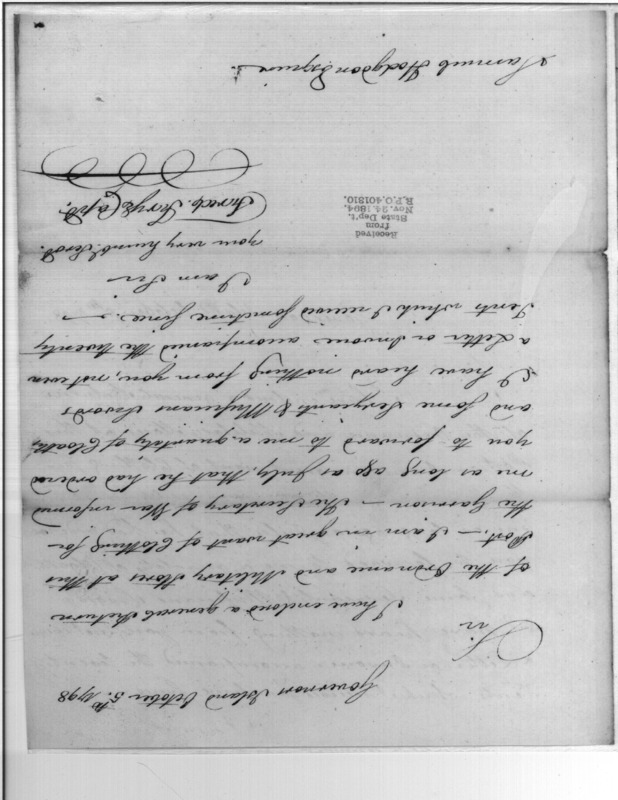 Governors Island October 5th 1798
Sir
I have enclosed a general Return
of the Ordnance and Military Stores at this
Post. — I am in great want of Clothing for
the Garrison — The Secretary of War informd
me as long ago as July, that he had ordered
you to forward to me a quantity of Cloathg
and some Sergeants & Musicians Swords
I have heard nothing from you, not even
a Letter or Invoice accompanied the twenty
Tents which I received sometime since. —
I am Sir
your very humb Servt.
Fredk. Frye Capt.
Received
from
State Dep't.
Nov. 24, 1894.
R.P.O. 401810.
Samuel Hodgdon Esquire